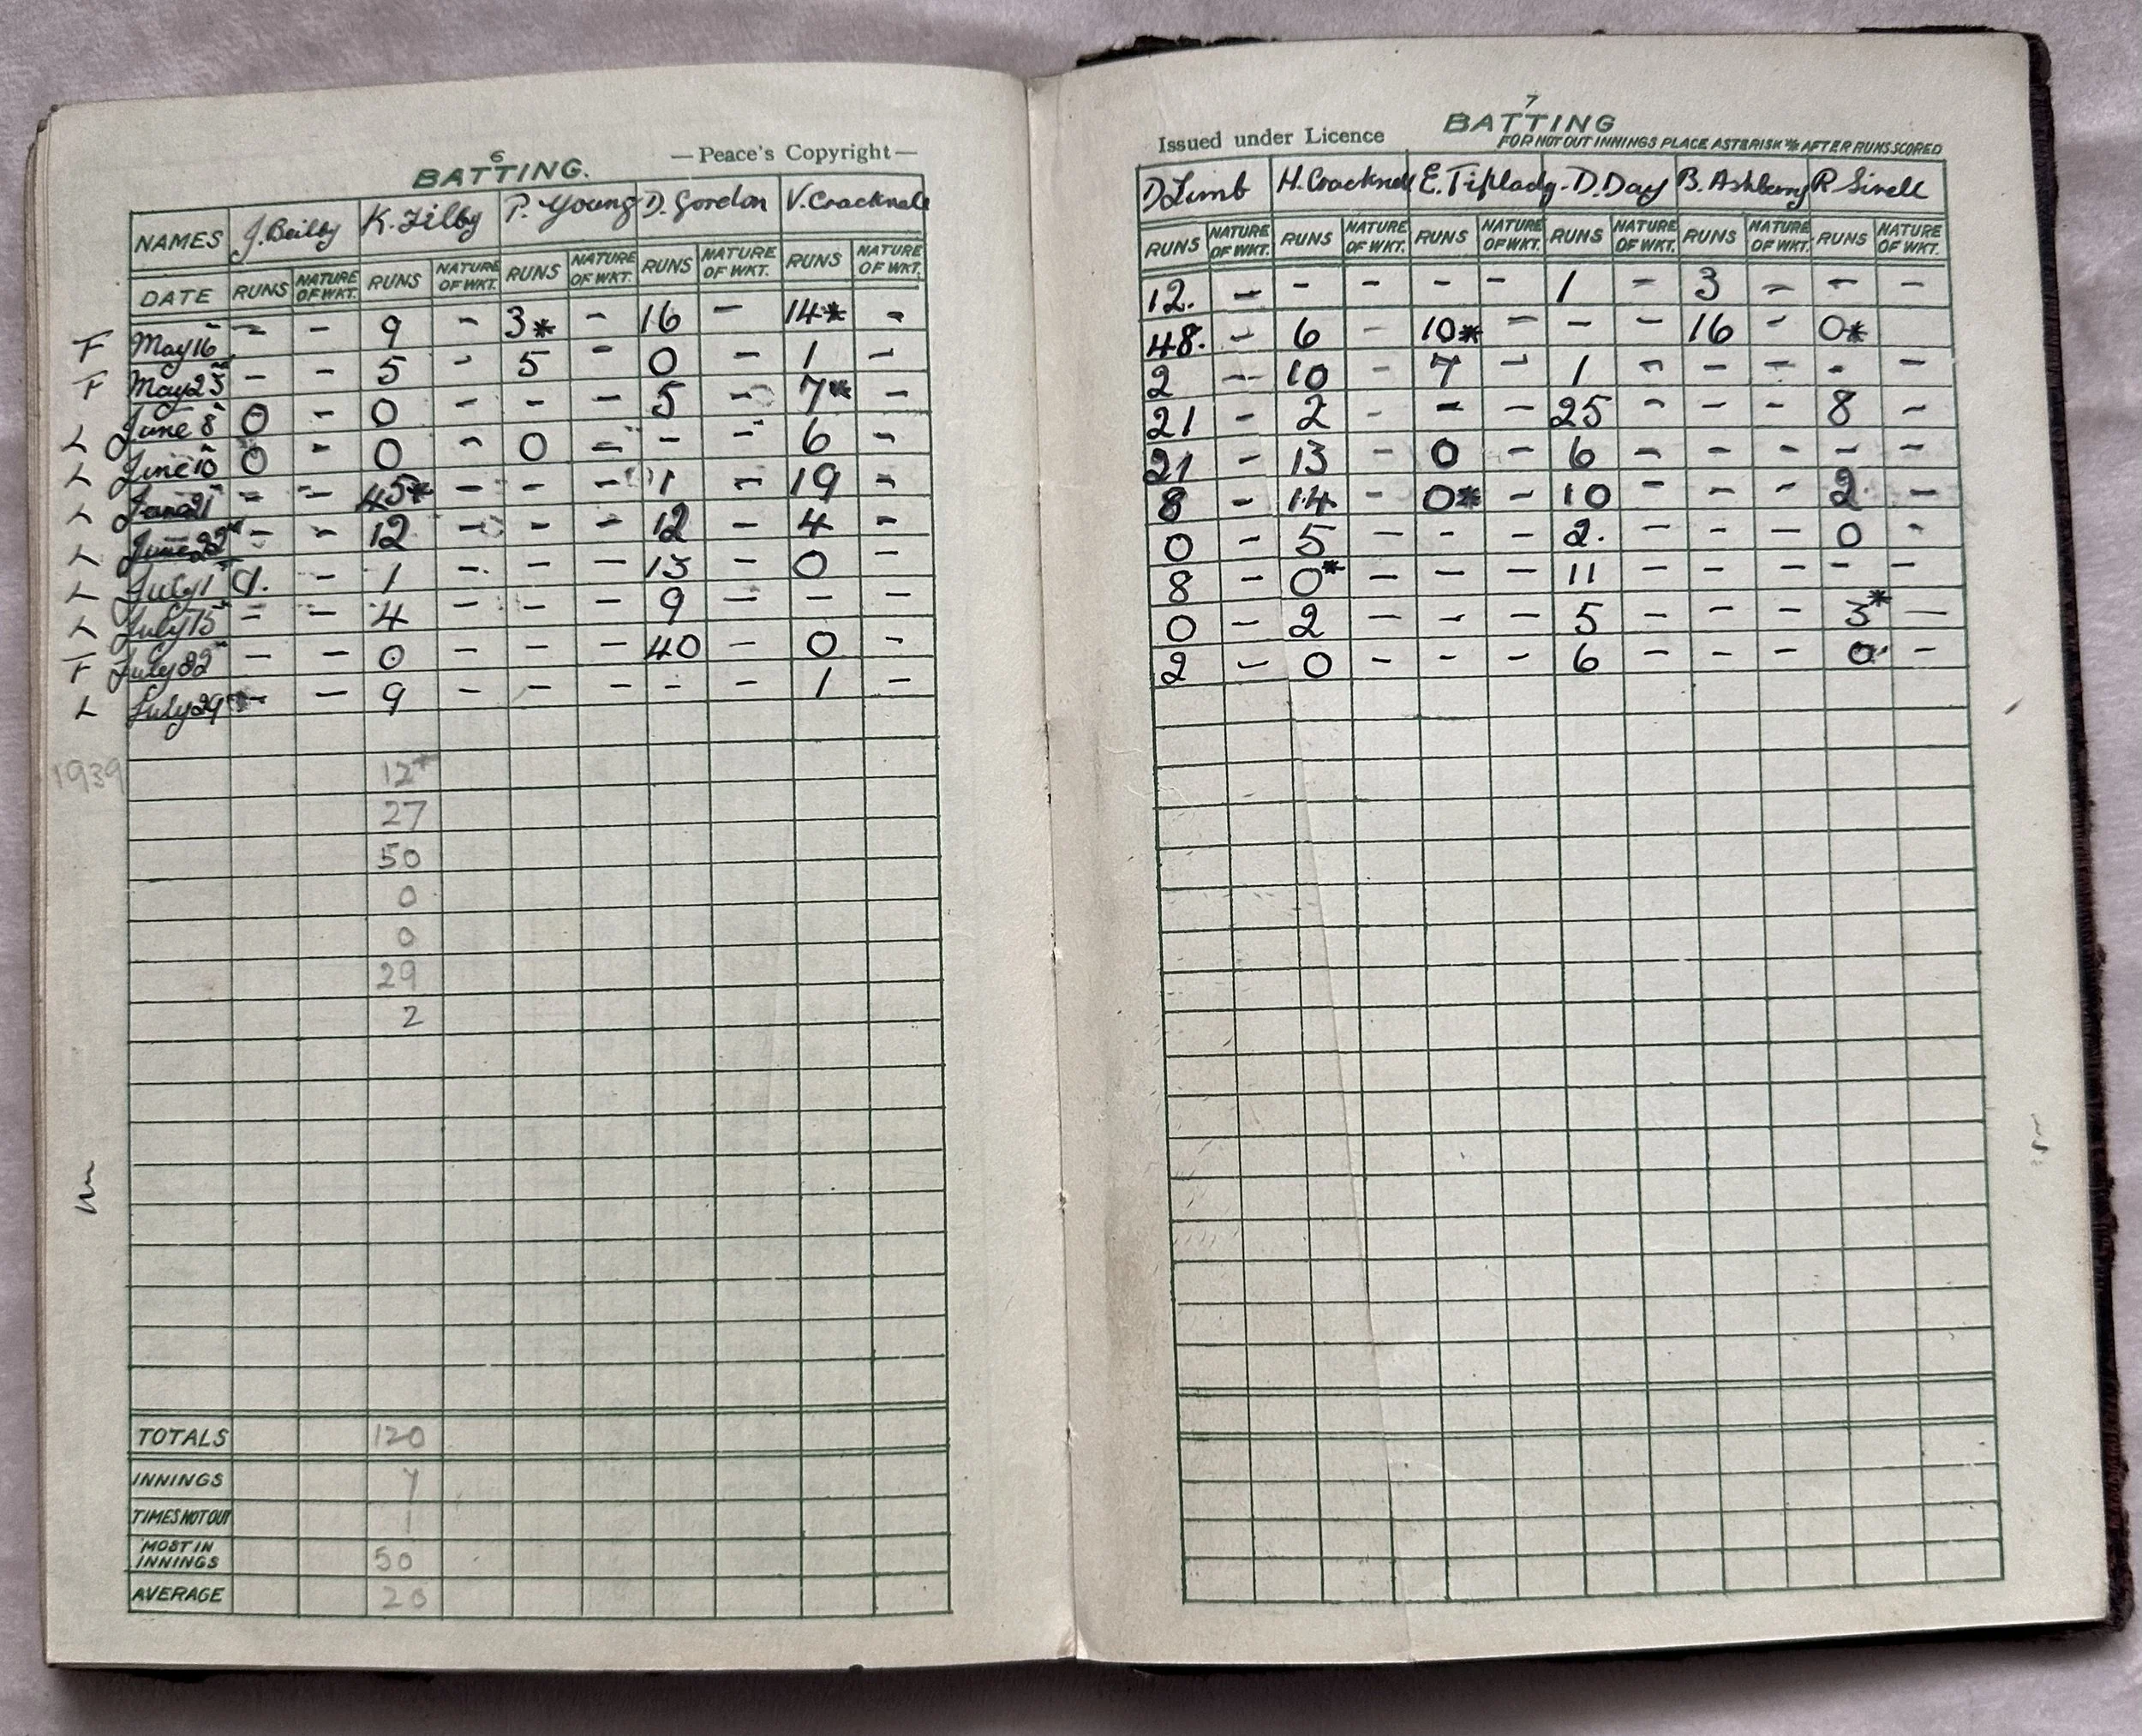 6
BATTING. —Peace's Copyright—
NAMES J. Beilby K. Filby P. Young D. Gordon V. Cracknell
DATE RUNS NATURE OF WKT. RUNS NATURE OF WKT. RUNS NATURE OF WKT. RUNS NATURE OF WKT. RUNS NATURE OF WKT.
F May 16 - - 9 - 3* - 16 - 14* -
F May 23 - - 5 - 5 - 0 - 1 -
L June 8 0 - 0 - - - 5 - 7* -
L June 10 0 - 0 - 0 - - - 6 -
L June 21 - - 45* - - - 1 - 19 -
L June 22 - - 12 - - - 12 - 4 -
L July 1 - 1 - - - 13 - 0 -
L July 15 - - 4 - - - 9 - - -
F July 22 - - 0 - - - 40 - 0 -
L July 29 - - 9 - - - - - 1 -
1939 12*
27
50
0
0
29
2
TOTALS 120
INNINGS 7
TIMES NOT OUT 1
MOST IN INNINGS 50
AVERAGE 20
7
Issued under Licence BATTING
FOR NOT OUT INNINGS PLACE ASTERISK * AFTER RUNS SCORED
D Limb H. Cracknell E. Tiplady. D. Day B. Ashberry R Sivell
RUNS NATURE OF WKT. RUNS NATURE OF WKT. RUNS NATURE OF WKT. RUNS NATURE OF WKT. RUNS NATURE OF WKT. RUNS NATURE OF WKT.
12. - - - - - 1 - 3 - - -
48. - 6 - 10* - - - 16 - 0*
2 - 10 - 7 - 1 - - - - -
21 - 2 - - - 25 - - - 8 -
21 - 13 - 0 - 6 - - - - -
8 - 14 - 0* - 10 - - - 2 -
0 - 5 - - - 2. - - - 0 -
8 - 0* - - - 11 - - - - -
0 - 2 - - - 5 - - - 3* -
2 - 0 - - - 6 - - - 0 -